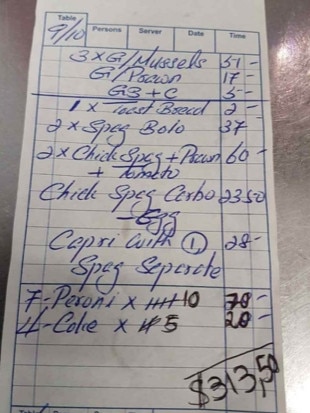 Table Persons Server Date Time
9/10
3 x G/Mussels 51 -
G/Prawn 17 -
GB + C 5 -
1 x Toast Bread 2 -
2 x Spag Bolo 37
2 x Chick Spag + Prawn 60 -
+ Tomato
Chick Spag Carbo 23.50
- Egg
Capri with 1 28 -
Spag Separate
7 - Peroni x 10 70 -
4 - Coke x 5 20 -
$313,50